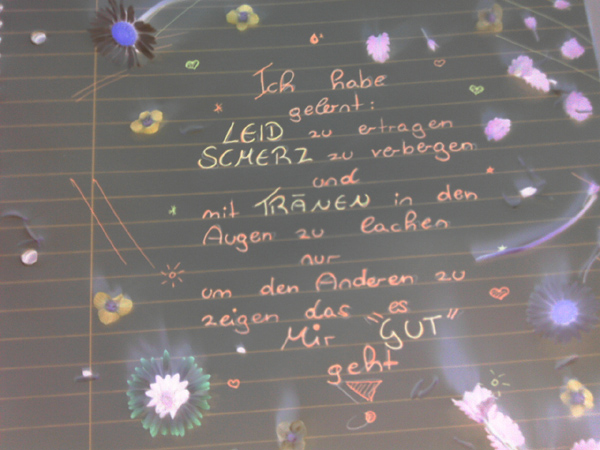 Ich habe
gelernt:
LEID zu ertragen
SCMERZ zu verbergen
und
mit TRÄNEN in den
Augen zu lachen
nur
um den Anderen zu
zeigen das es
Mir "GUT"
geht